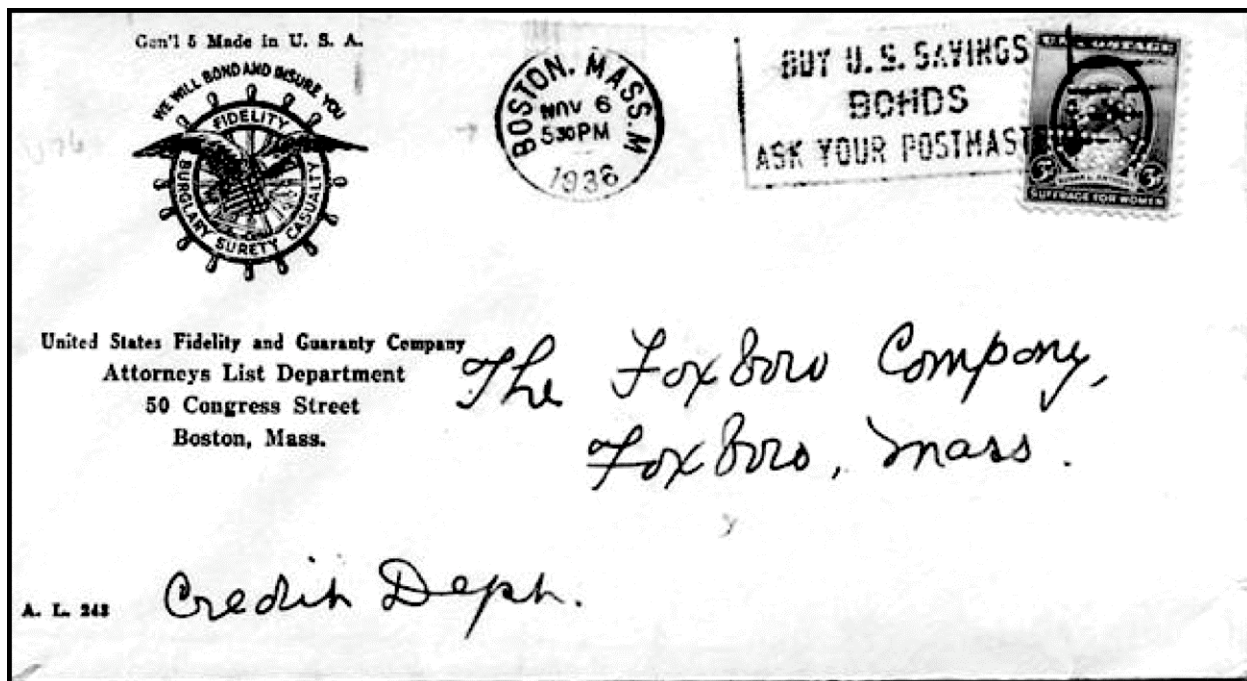 Gen'l 5 Made in U. S. A.
WE WILL BOND AND INSURE YOU
FIDELITY
BURGLARY SURETY CASUALTY
BOSTON, MASS. M
NOV 6
5 30 PM
1936
BUY U. S. SAVINGS
BONDS
ASK YOUR
U.S. POSTAGE
SUSAN B. ANTHONY
3¢ 3¢
SUFFRAGE FOR WOMEN
United States Fidelity and Guaranty Company
Attorneys List Department
50 Congress Street
Boston, Mass.
The Foxboro Company,
Foxboro, Mass.
A. L. 243
Credit Dept.